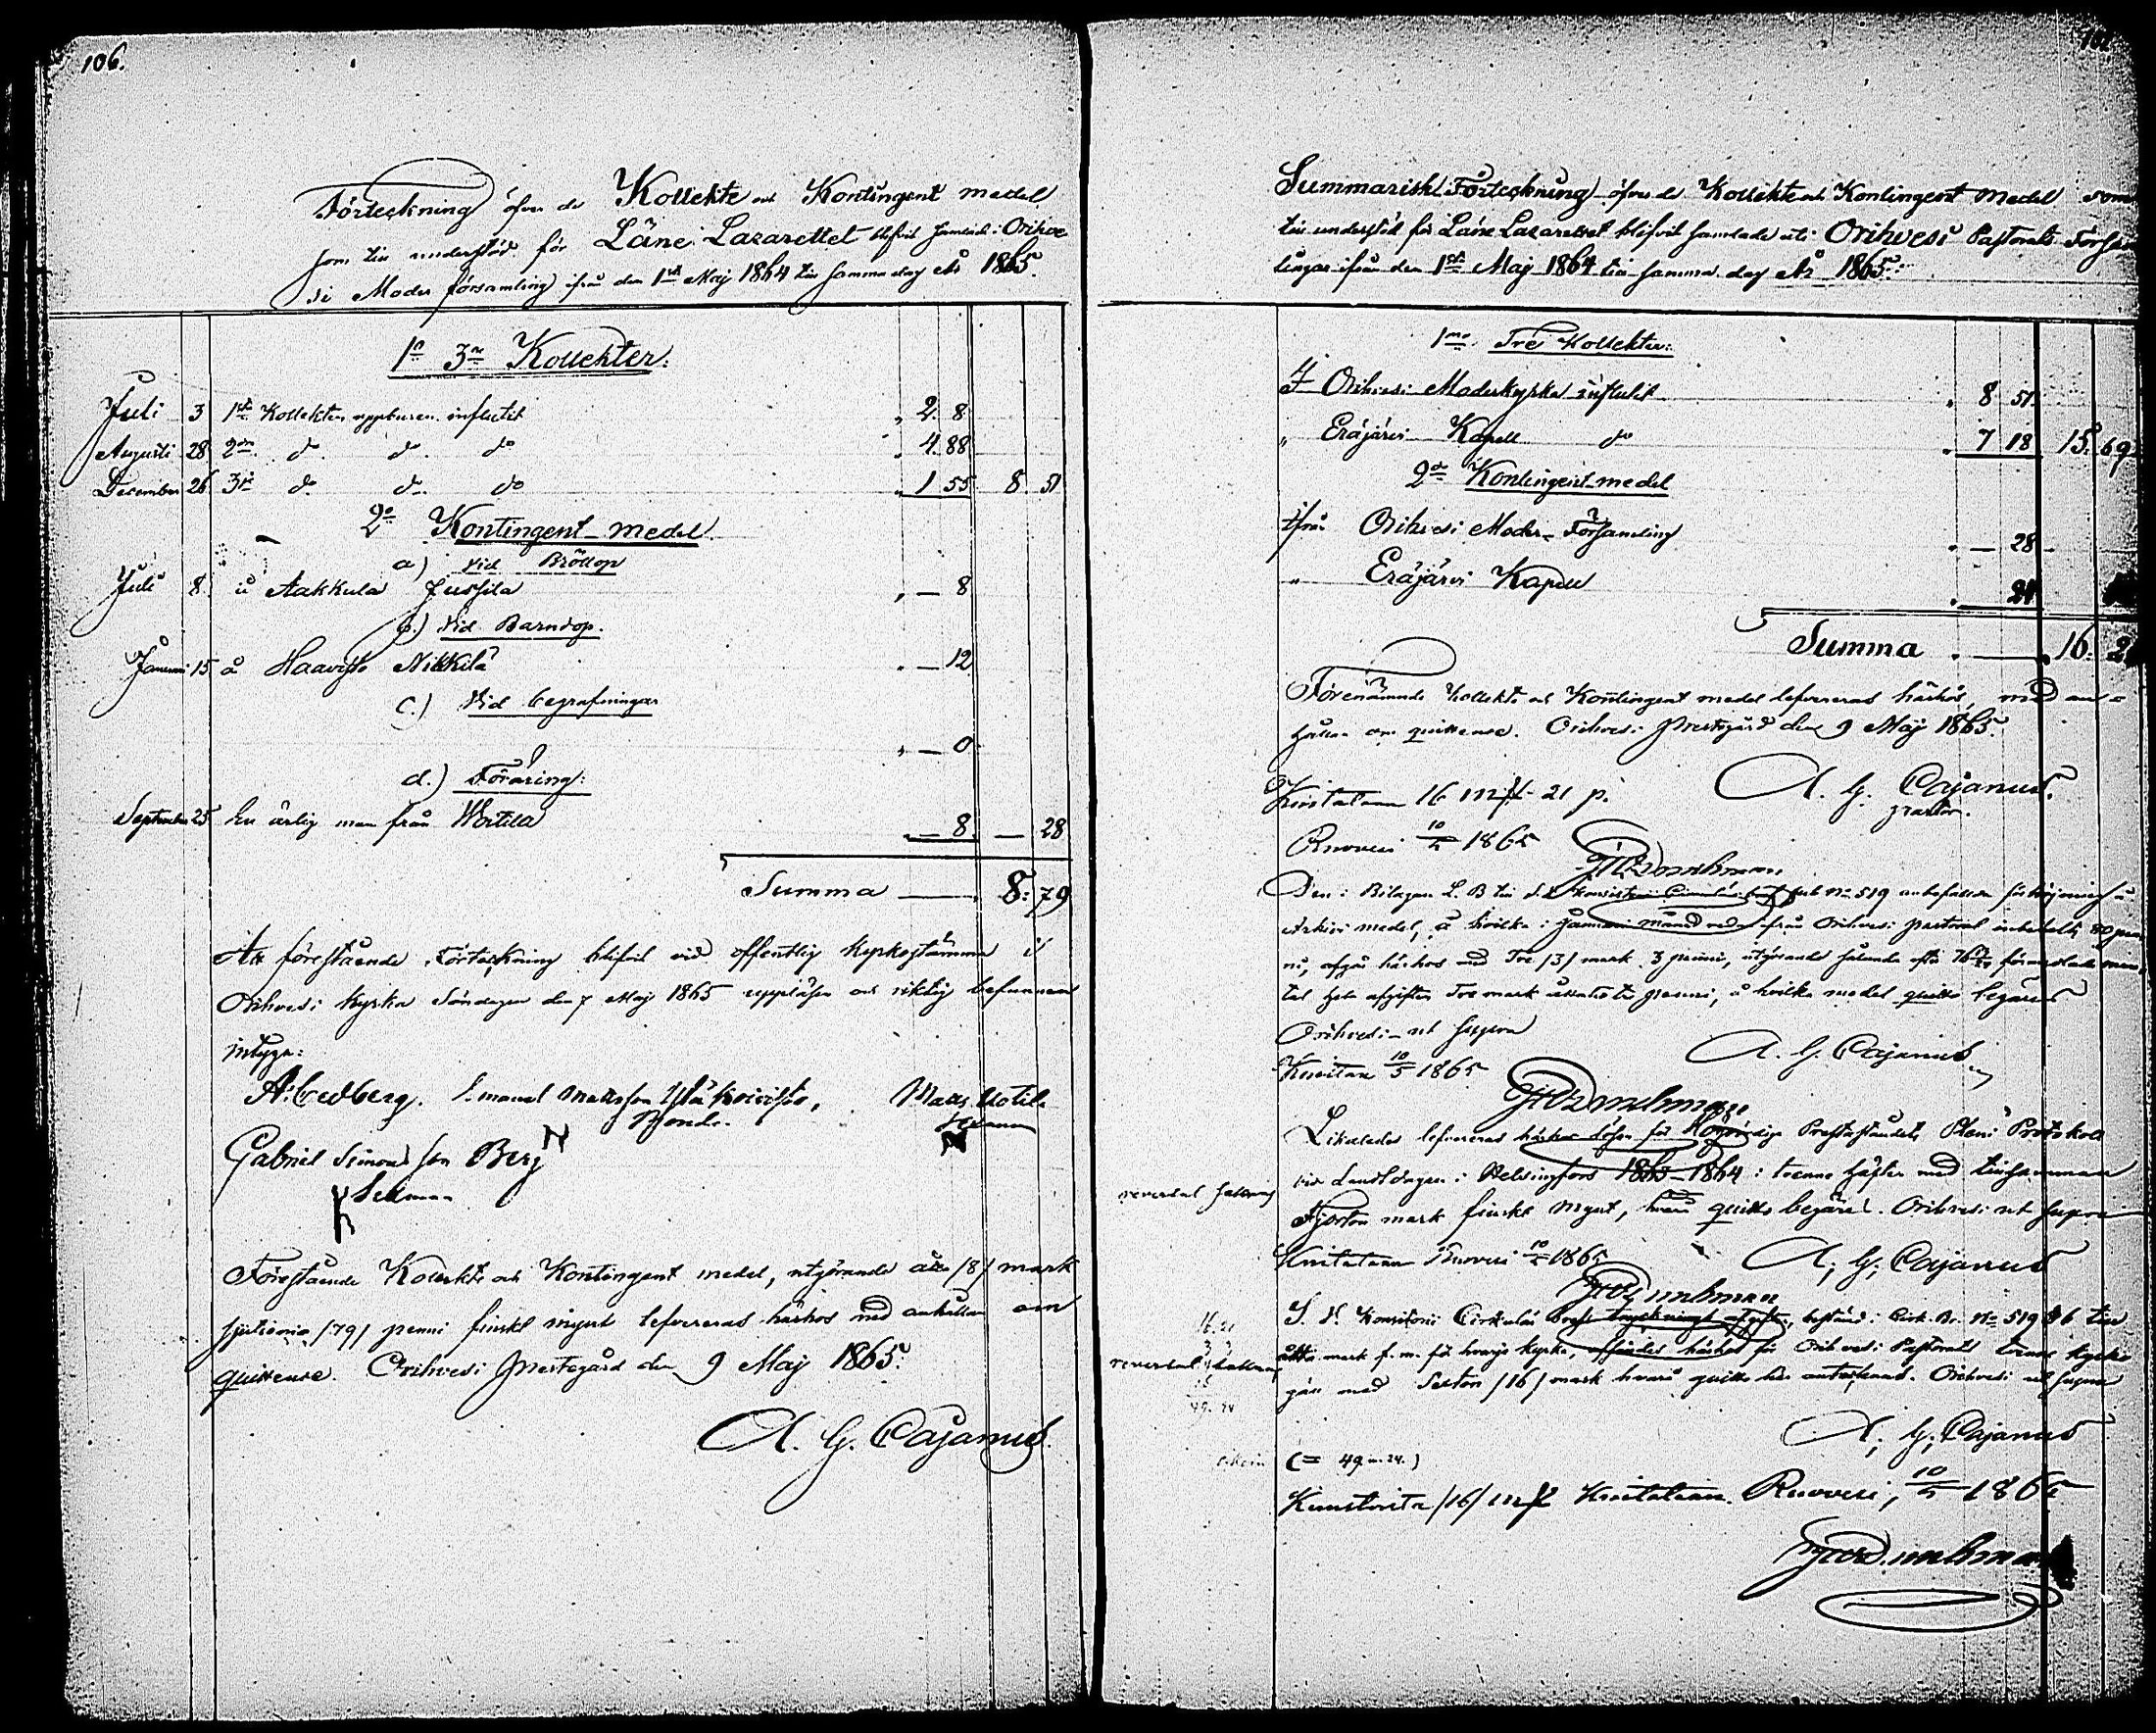 106.
Förteckning öfver de Kollekte och Kontingent medel
som till understöd för Läns Lazarettet blifvit samlade i Orihve
si Moder församling ifrån den 1sta Maj 1864 till samma dag År 1865.
1o 3ne Kollekter:
Juli 3 1sta Kollekten uppburen influtit " 2. 8
Augusti 28 2dra do do do " 4. 88
December 26 3dje do do do " 1 55 8 51
2o Kontingent-medel
a) Vid Bröllop
Juli 8 å Aakkula Jussila " — 8
b.) Vid Barndop.
Januari 15 å Haavisto Nikkilä " — 12
c.) Vid begrafningar
" — 0
d.) Föräring:
September 25 En ärlig man från Wertila " — 8 — 28
Summa — 8: 79
Att förestående Förteckning blifvit vid offentlig kyrkostämma i
Orihvesi kyrka Söndagen den 7 Maj 1865 uppläsen och riktig befunnen
intyga:
A. Cedberg. Emanuel Mattsson Yläkoivisto, Matts Uotila
Bonde.
Gabriel Simonsson Berj
Sexman
Förestående Kollekt och Kontingent medel, utgörande åtta /8/ mark
sjutionio /79/ penni finskt mynt lefvereras härhos med anhållan om
quittence. Orihvesi Prestegård den 9 Maj 1865.
A. G. Cajanus.
Summarisk Förteckning öfver de Kollekt och Kontingent Medel som
till understöd för Läns Lazarettet blifvit samlade uti Orihvesi Pastorats Försam
lingar ifrån den 1sta Maj 1864 till samma dag År 1865.
1mo Tre Kollekter:
I Orihvesi Moderkyrka influtit " 8 51.
" Eräjärvi Kapell do " 7 18 15. 69
2do Kontingent-medel
Ifrån Orihvesi Moder-Församling " — 28
" Eräjärvi Kapell " 24
Summa " — " 16. 21
Förenämnde Kollekt och Kontingent medel lefvereras härhos, med an-
hållan om quittence. Orihvesi Prestegård den 9 Maj 1865.
A. G. Cajanus.
Pastor.
Kvitteras 16 mk 21 p.
Ruovesi 10/5 1865
Den i Bilagan L. B till S. V. Konsistorii Cirkulär bref sub No 519 anbefallda förhöjning å
Arkivi medel, å hvilka i Januari månad redan från Orihvesi pastorat inbetalts 80 pen
ni, afgår härhos med Tre /3/ mark 3 penni, utgörande sålunda efter
tal hela afgiften Tre mark åttatiotre penni, å hvilka medel quitto begäres
Orihvesi ut supra
A. G. Cajanus
Kvitteras 10/5 1865
Likaledes lefvereras härhos lösen för Högvördiga Presteståndets Pleni Protokoll
vid Landtdagen i Helsingfors 1863–1864 i trenne häften med tillsamman
Fjorton mark finskt mynt, hvarå quitto begäres. Orihvesi ut supra
A. G. Cajanus
Kvitteras Ruovesi 10/5 1865
S. V. Konsistorii Cirkulär Bref trycknings afgift, bestämd i Cirk. Br. No 519 § 6 till
åtta mark f. m. för hvarje kyrka, afsändes härhos för Orihvesi Pastorats tvenne kyrkor
gäll med Sexton /16/ mark hvarå quitto här antecknas. Orihvesi ut supra
A. G. Cajanus
(= 49 m. 24.)
Kuusitoista /16/ mk Kvitteras. Ruovesi, 10/5 1865